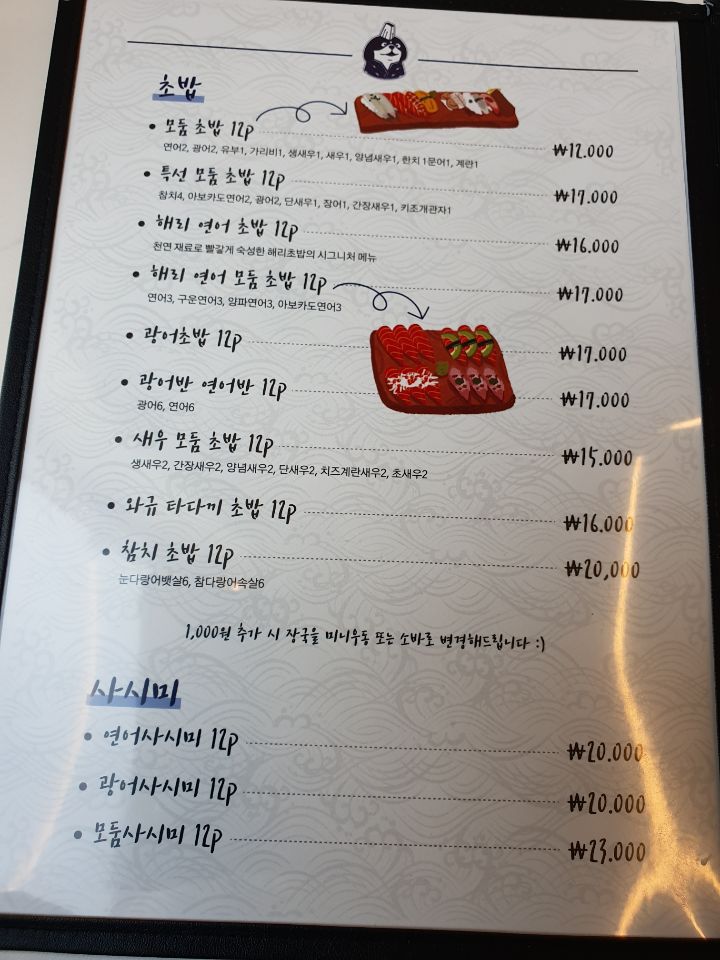 초밥
모둠 초밥 12p ₩12.000
연어2, 광어2, 유부1, 가리비1, 생새우1, 새우1, 양념새우1, 한치 1문어1, 계란1
특선 모둠 초밥 12p ₩17.000
참치4, 아보카도연어2, 광어2, 단새우1, 장어1, 간장새우1, 키조개관자1
해리 연어 초밥 12p ₩16.000
천연 재료로 빨갛게 숙성한 해리초밥의 시그니처 메뉴
해리 연어 모둠 초밥 12p ₩17.000
연어3, 구운연어3, 양파연어3, 아보카도연어3
광어초밥 12p ₩17.000
광어반 연어반 12p ₩17.000
광어6, 연어6
새우 모둠 초밥 12p ₩15.000
생새우2, 간장새우2, 양념새우2, 단새우2, 치즈계란새우2, 초새우2
와규 타다끼 초밥 12p ₩16.000
참치 초밥 12p ₩20,000
눈다랑어뱃살6, 참다랑어속살6
1,000원 추가 시 장국을 미니우동 또는 소바로 변경해드립니다 :)
사시미
연어사시미 12p ₩20.000
광어사시미 12p ₩20.000
모둠사시미 12p ₩23.000